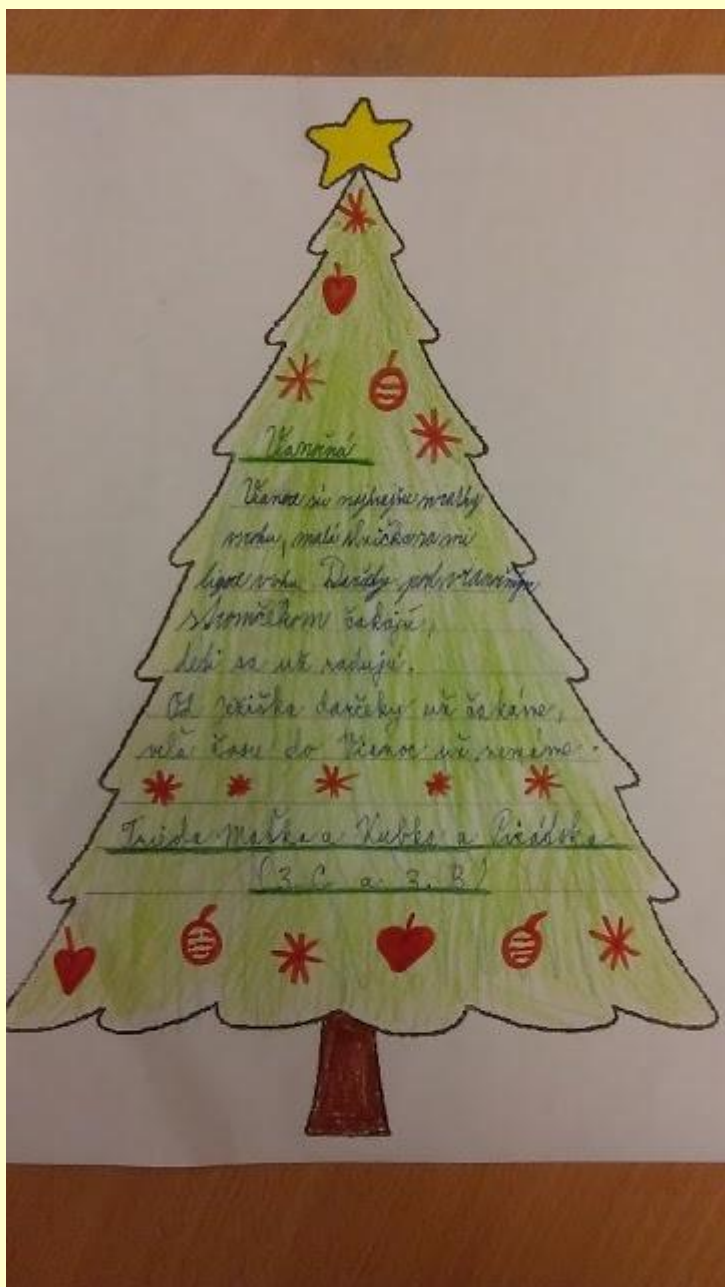 Vianočná
Vianoce sú najkrajšie sviatky
vroku, malé
voku. Darčeky pod vianočným
stromčekom čakajú,
deti sa už radujú.
Od Ježiška darčeky už čakáme,
veľa času do Vianoc už nemáme.
Trieda Maťka a Kubka a
(3. C a 3. B)